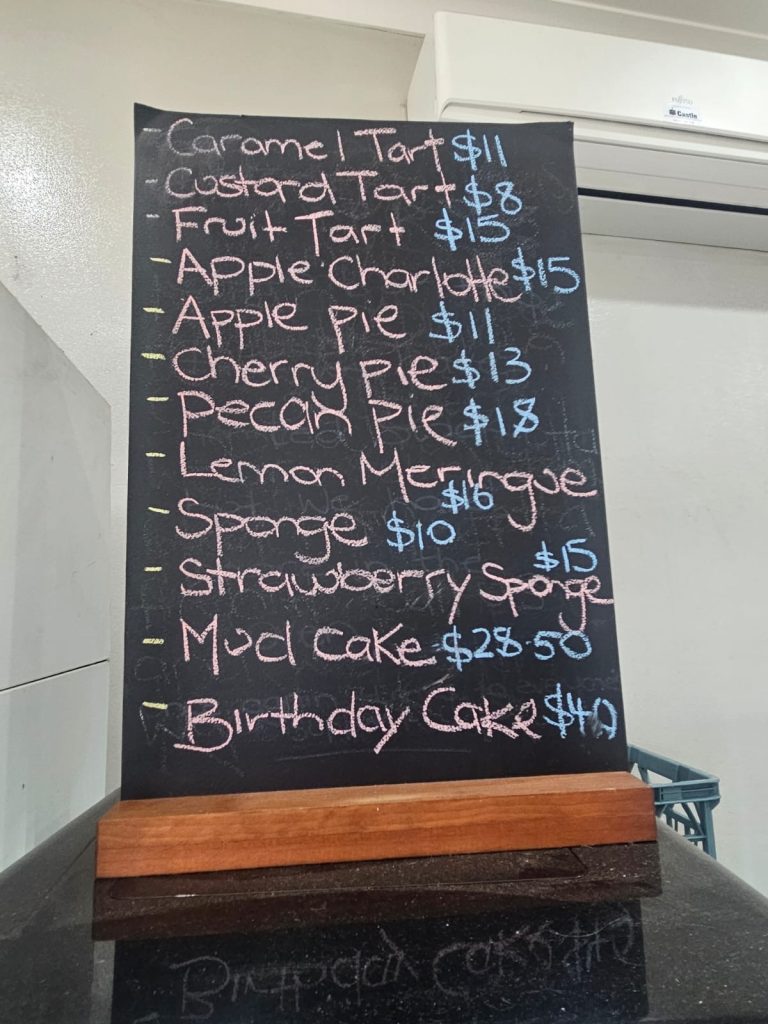 FUJITSU
Castle
- Caramel Tart $11
- Custard Tart $8
- Fruit Tart $15
- Apple Charlotte $15
- Apple pie $11
- Cherry pie $13
- Pecan pie $18
- Lemon Meringue
$16
- Sponge $10
$15
- Strawberry Sponge
- Mud cake $28.50
- Birthday Cake $40